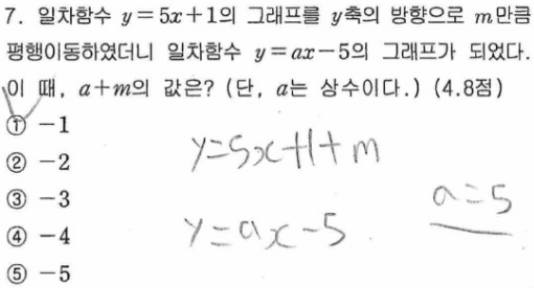 7. 일차함수 y=5x+1의 그래프를 y축의 방향으로 m만큼
평행이동하였더니 일차함수 y=ax-5의 그래프가 되었다.
이 때, a+m의 값은? (단, a는 상수이다.) (4.8점)
① -1
② -2
③ -3
④ -4
⑤ -5
y=5x+1+m
y=ax-5
a=5